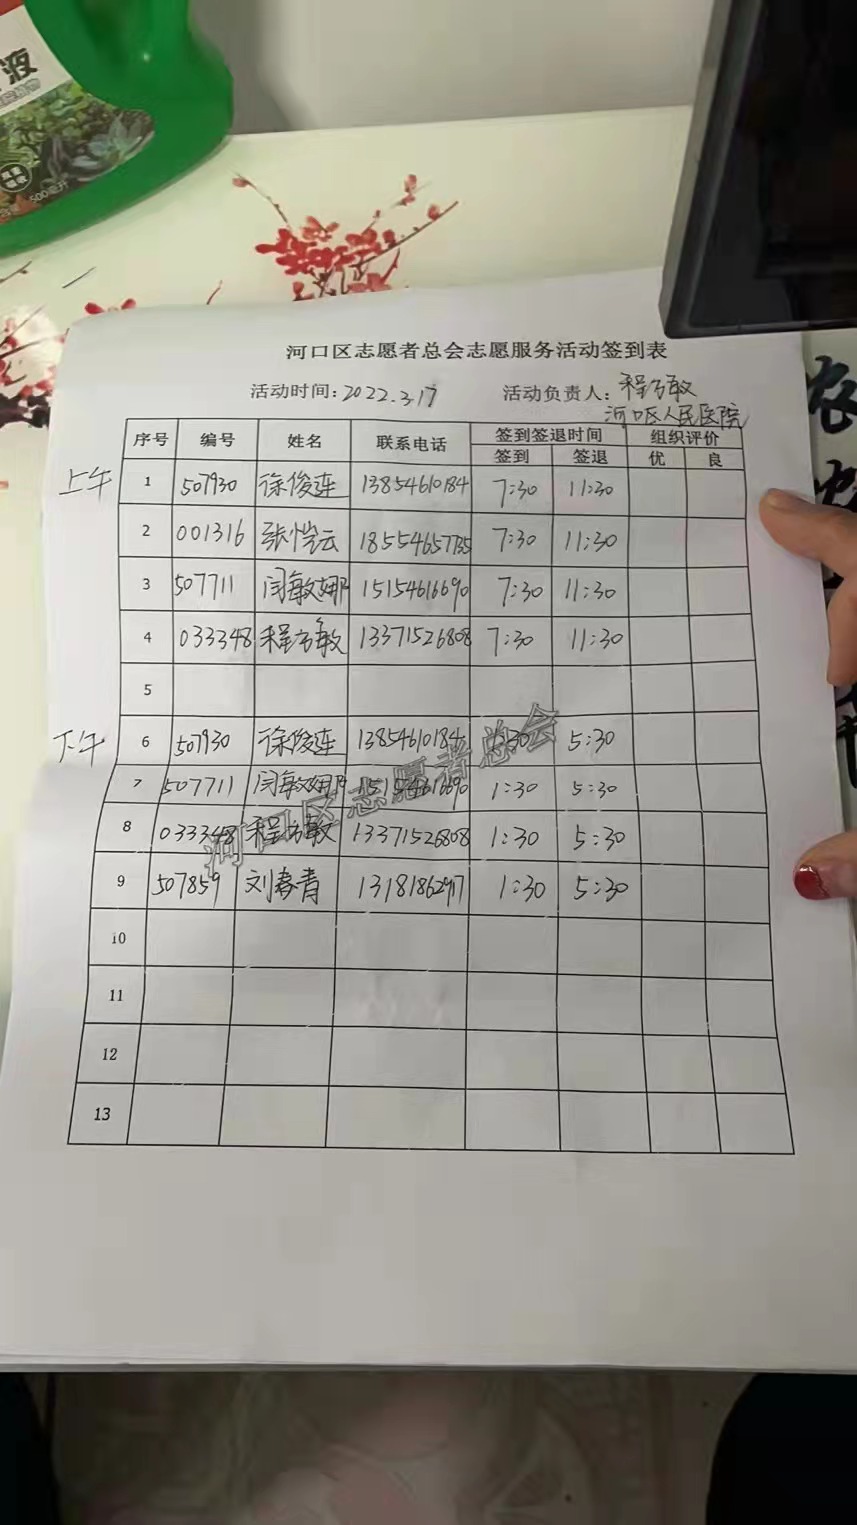 液
500毫升
河口区志愿者总会志愿服务活动签到表
活动时间:2022.3.17 活动负责人:程方敏
河口区人民医院
序号 编号 姓名 联系电话 签到签退时间 组织评价
签到 签退 优 良
上午 1 507930 徐俊连 13854610184 7:30 11:30
2 001316 张恺云 18554657735 7:30 11:30
3 507711 闫敏娜 15154616690 7:30 11:30
4 033348 程方敏 13371526808 7:30 11:30
5
下午 6 507930 徐俊连 13854610184 1:30 5:30
7 507711 闫敏娜 15154616690 1:30 5:30
8 033348 程方敏 13371526808 1:30 5:30
9 507859 刘春青 13181862917 1:30 5:30
10
11
12
13
河口区志愿者总会